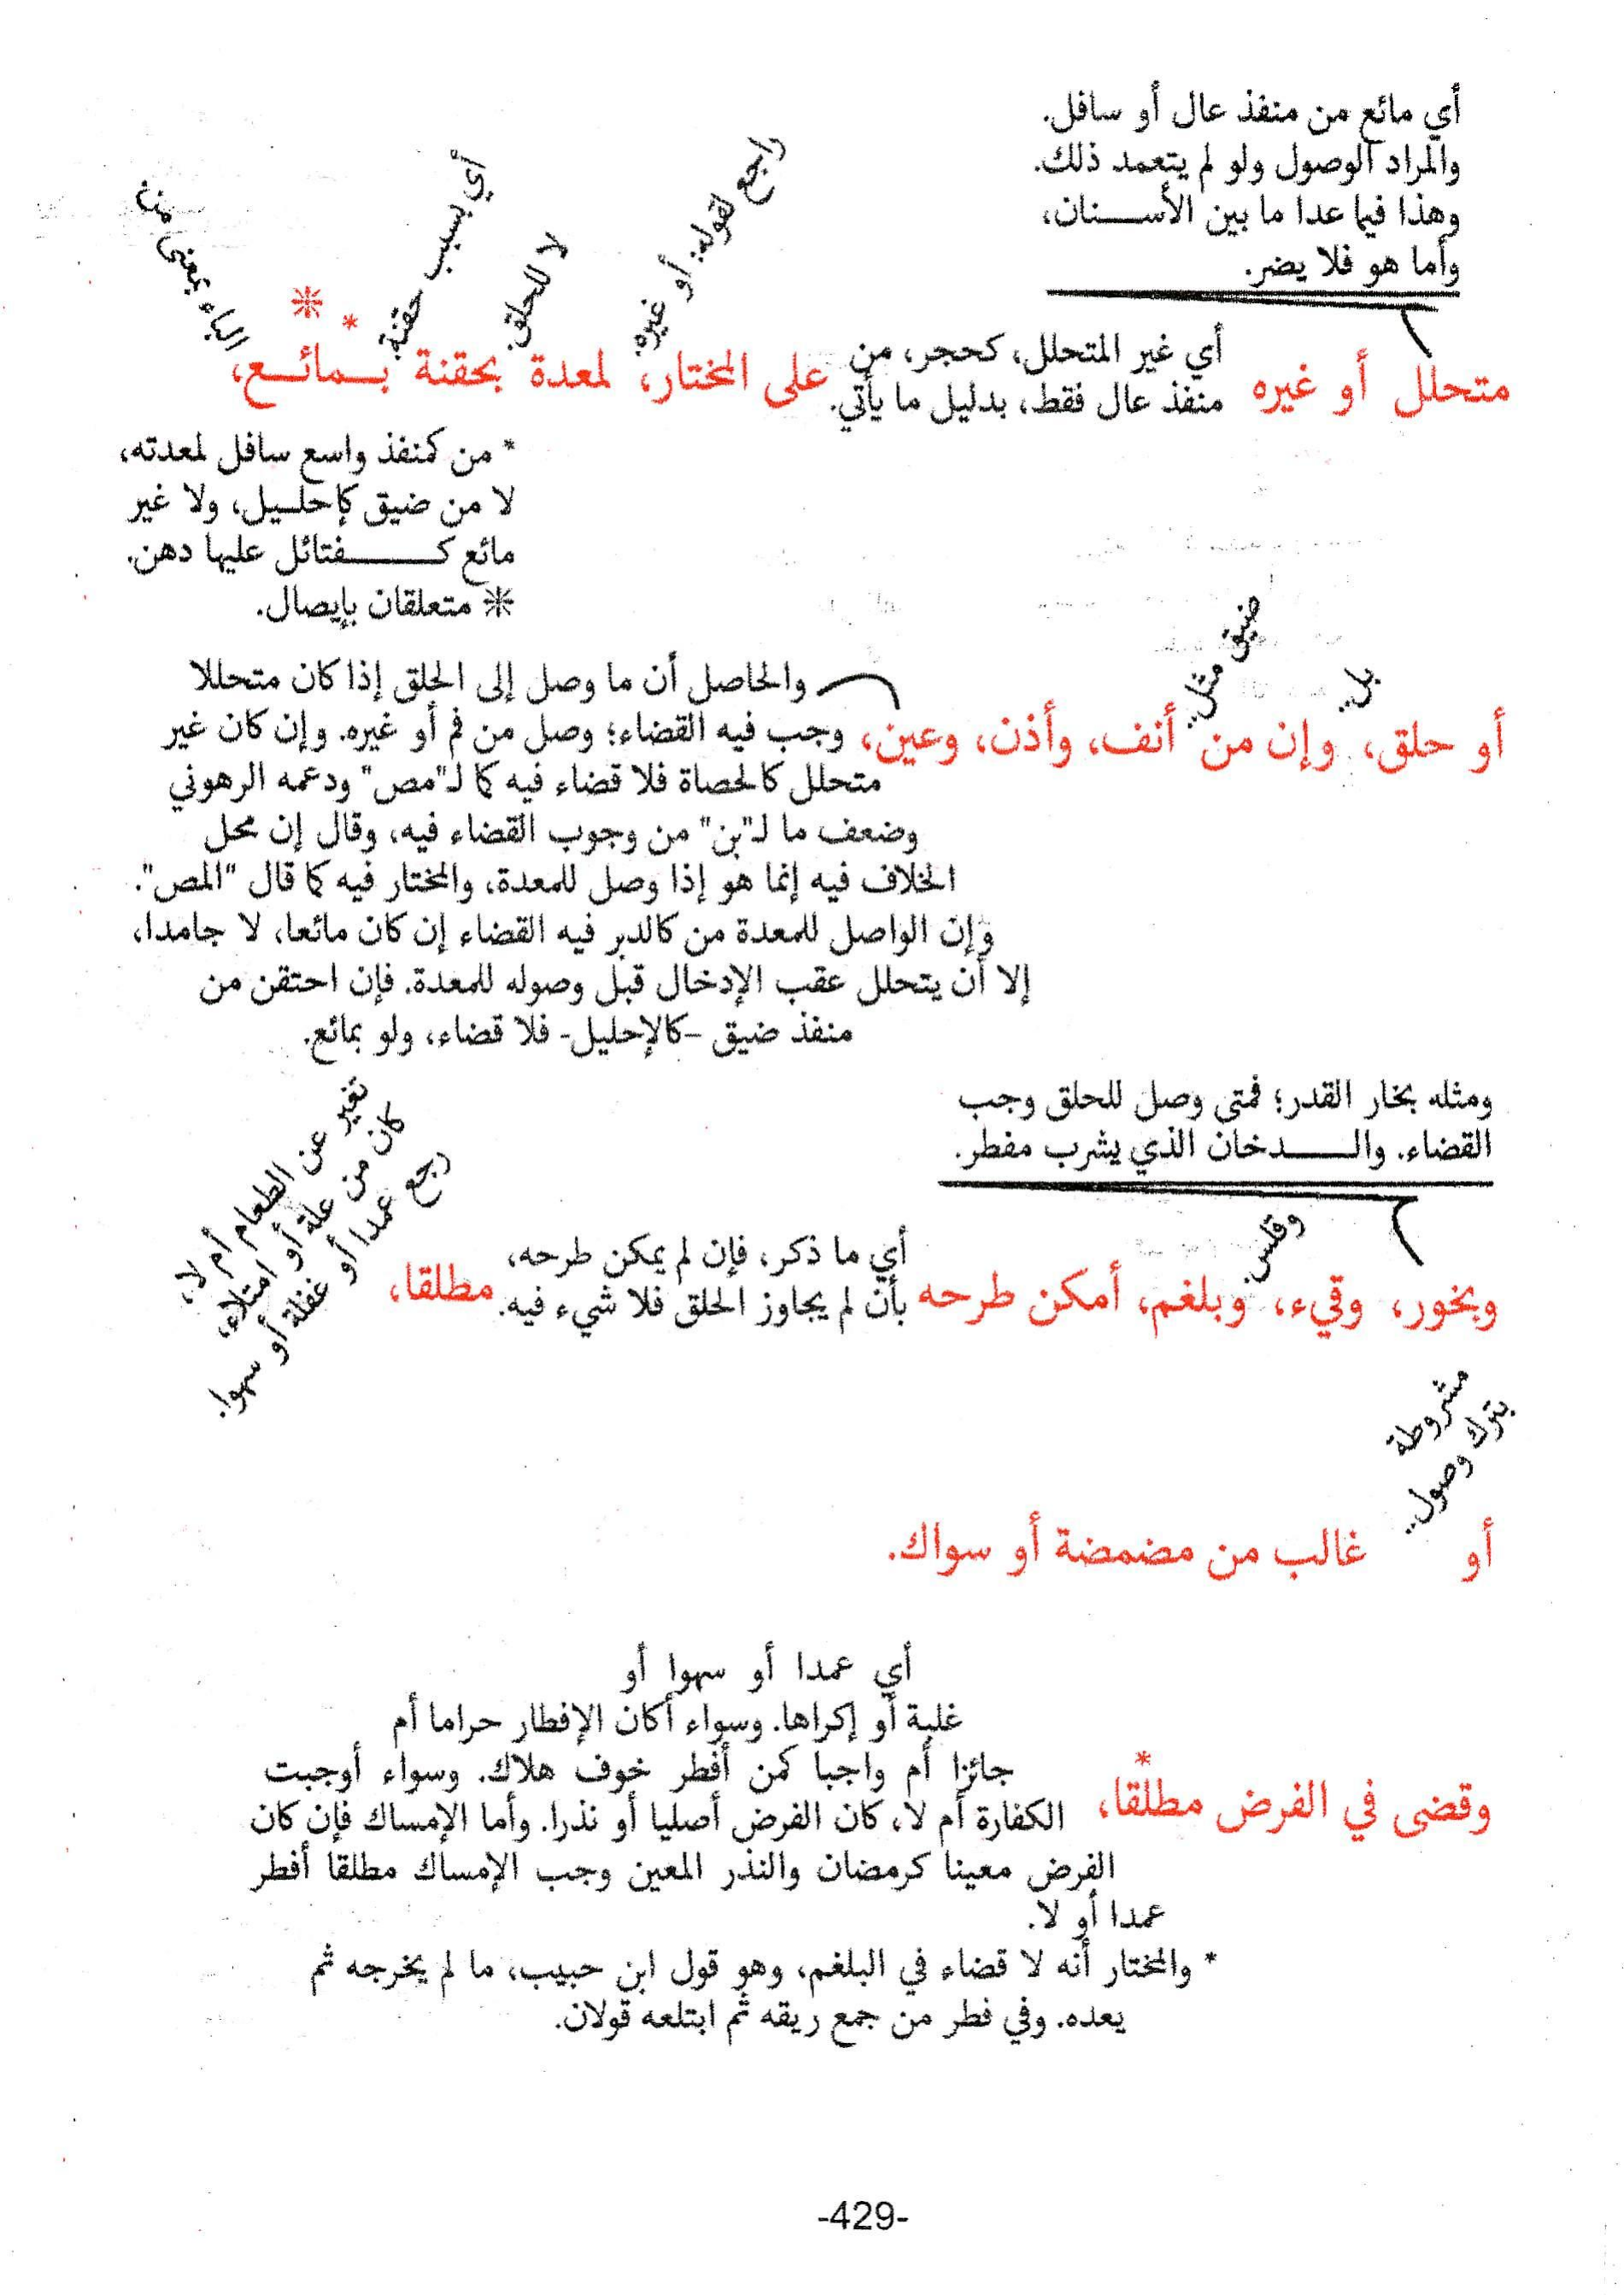 أي مائع من منفذ عال أو سافل.
والمراد الوصول ولو لم يتعمد ذلك.
وهذا فيما عدا ما بين الأسنان،
وأما هو فلا يضر.
راجع لقوله: أو غيره.
لا للحلق.
أي بسبب حقنة.
الباء بمعنى من.
متحلل أو غيره
أي غير المتحلل، كحجر، من
منفذ عال فقط، بدليل ما يأتي.
على المختار، لمعدة بحقنة بمائع،
* من كمنفذ واسع سافل لمعدته،
لا من ضيق كإحليل، ولا غير
مائع كفتائل عليها دهن.
❊ متعلقان بإيصال.
بل.
ضيق مثل.
أو حلق، وإن من أنف، وأذن، وعين،
والحاصل أن ما وصل إلى الحلق إذا كان متحللا
وجب فيه القضاء؛ وصل من فم أو غيره. وإن كان غير
متحلل كالحصاة فلا قضاء فيه كما لـ"مص" ودعمه الرهوني
وضعف ما لـ"بن" من وجوب القضاء فيه، وقال إن محل
الخلاف فيه إنما هو إذا وصل للمعدة، والمختار فيه كما قال "المص".
وإن الواصل للمعدة من كالدبر فيه القضاء إن كان مائعا، لا جامدا،
إلا أن يتحلل عقب الإدخال قبل وصوله للمعدة. فإن احتقن من
منفذ ضيق -كالإحليل- فلا قضاء، ولو بمائع.
ومثله بخار القدر؛ فمتى وصل للحلق وجب
القضاء. والدخان الذي يشرب مفطر.
وقلس.
وبخور، وقيء، وبلغم، أمكن طرحه
أي ما ذكر، فإن لم يمكن طرحه،
بأن لم يجاوز الحلق فلا شيء فيه.
مطلقا،
تغير عن الطعام أم لا،
كان من علة أو امتلاء،
رجع عمدا أو غفلة أو سهوا.
مشروطة
بترك وصول..
أو غالب من مضمضة أو سواك.
وقضى في الفرض مطلقا*،
أي عمدا أو سهوا أو
غلبة أو إكراها. وسواء أكان الإفطار حراما أم
جائزا أم واجبا كمن أفطر خوف هلاك. وسواء أوجبت
الكفارة أم لا، كان الفرض أصليا أو نذرا. وأما الإمساك فإن كان
الفرض معينا كرمضان والنذر المعين وجب الإمساك مطلقا أفطر
عمدا أو لا.
* والمختار أنه لا قضاء في البلغم، وهو قول ابن حبيب، ما لم يخرجه ثم
يعده. وفي فطر من جمع ريقه ثم ابتلعه قولان.
-429-